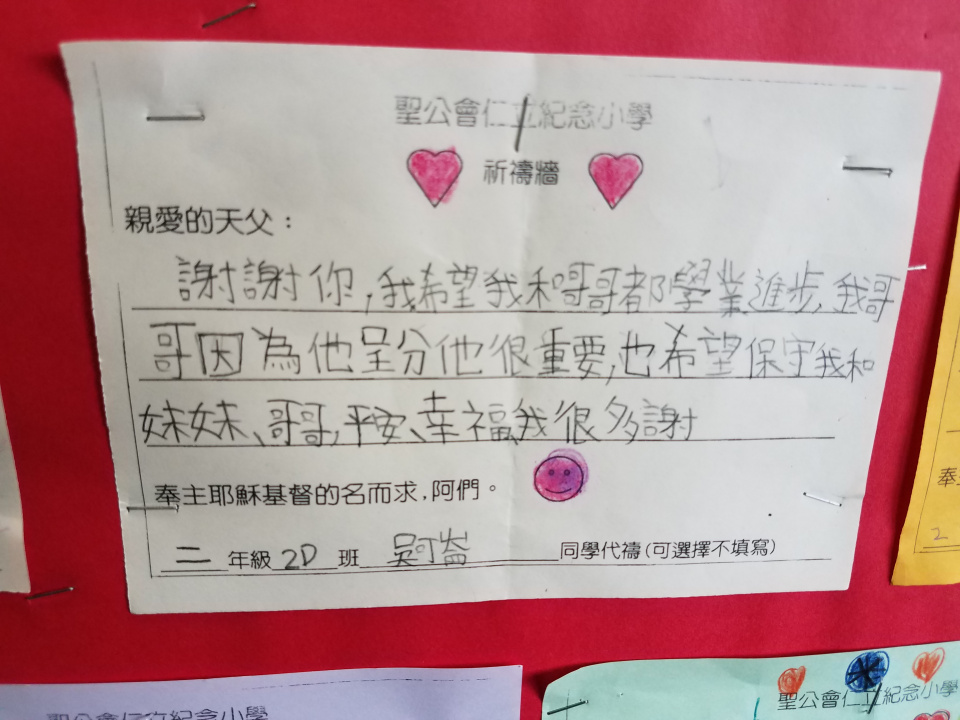 聖公會仁立紀念小學
祈禱牆
親愛的天父：
謝謝你,我希望我和哥哥都學業進步,我哥
哥因為他呈分他很重要,也希望保守我和
妹妹、哥哥,平安、幸福,我很多謝
奉主耶穌基督的名而求,阿們。
二 年級 2D 班 吳可崙 同學代禱(可選擇不填寫)
奉
2
聖公會仁立紀念小學
聖公會仁立紀念小學